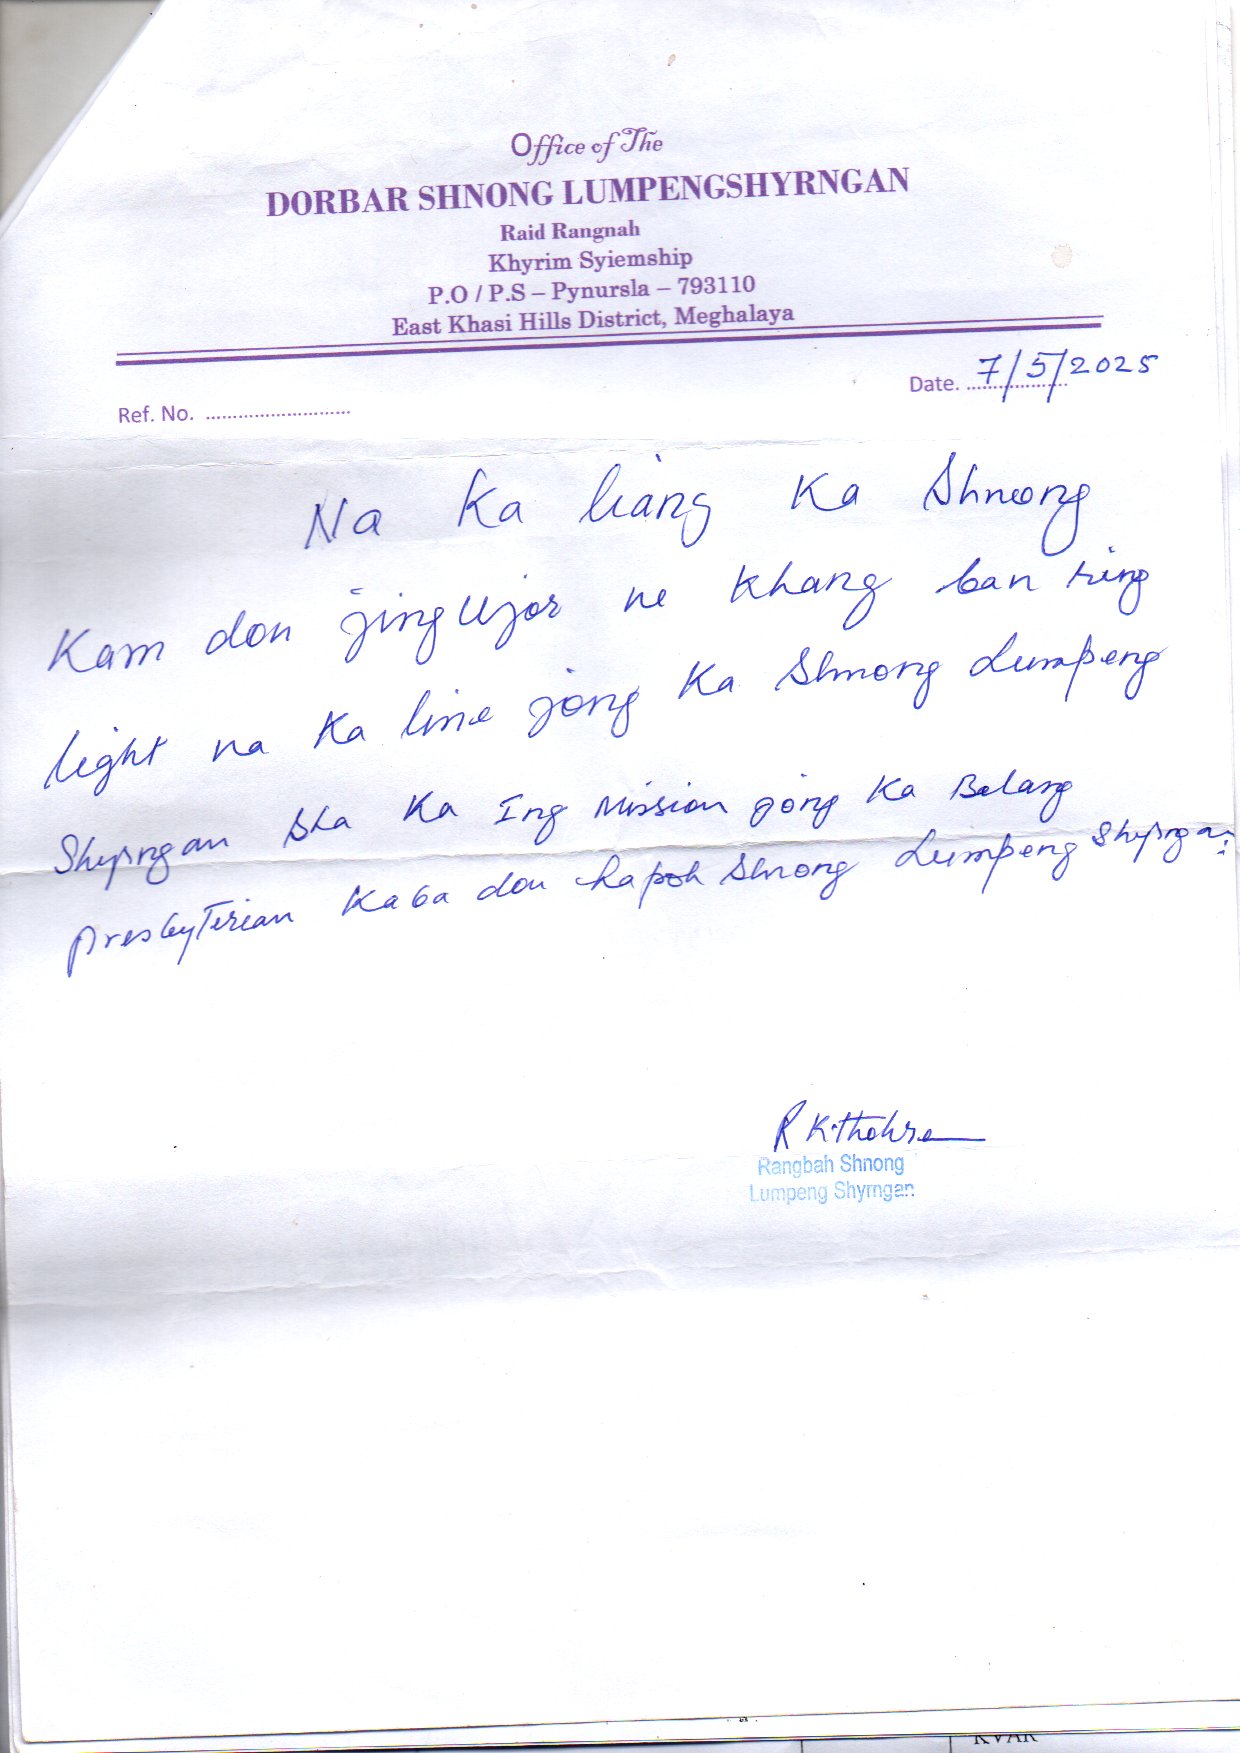 Office of The
DORBAR SHNONG LUMPENGSHYRNGAN
Raid Rangnah
Khyrim Syiemship
P.O / P.S – Pynursla – 793110
East Khasi Hills District, Meghalaya
Ref. No. ........................... Date. 7/5/2025
Na Ka liang Ka Shnong
Kam don jingUjor ne Khang ban ring
light na Ka line jong Ka Shnong Lumpeng
Shyrngan sha Ka Ing Mission jong Ka Balang
Presbyterian Kaba don hapoh Shnong Lumpeng Shyrngan.
Rangbah Shnong
Lumpeng Shyrngan
KVAR